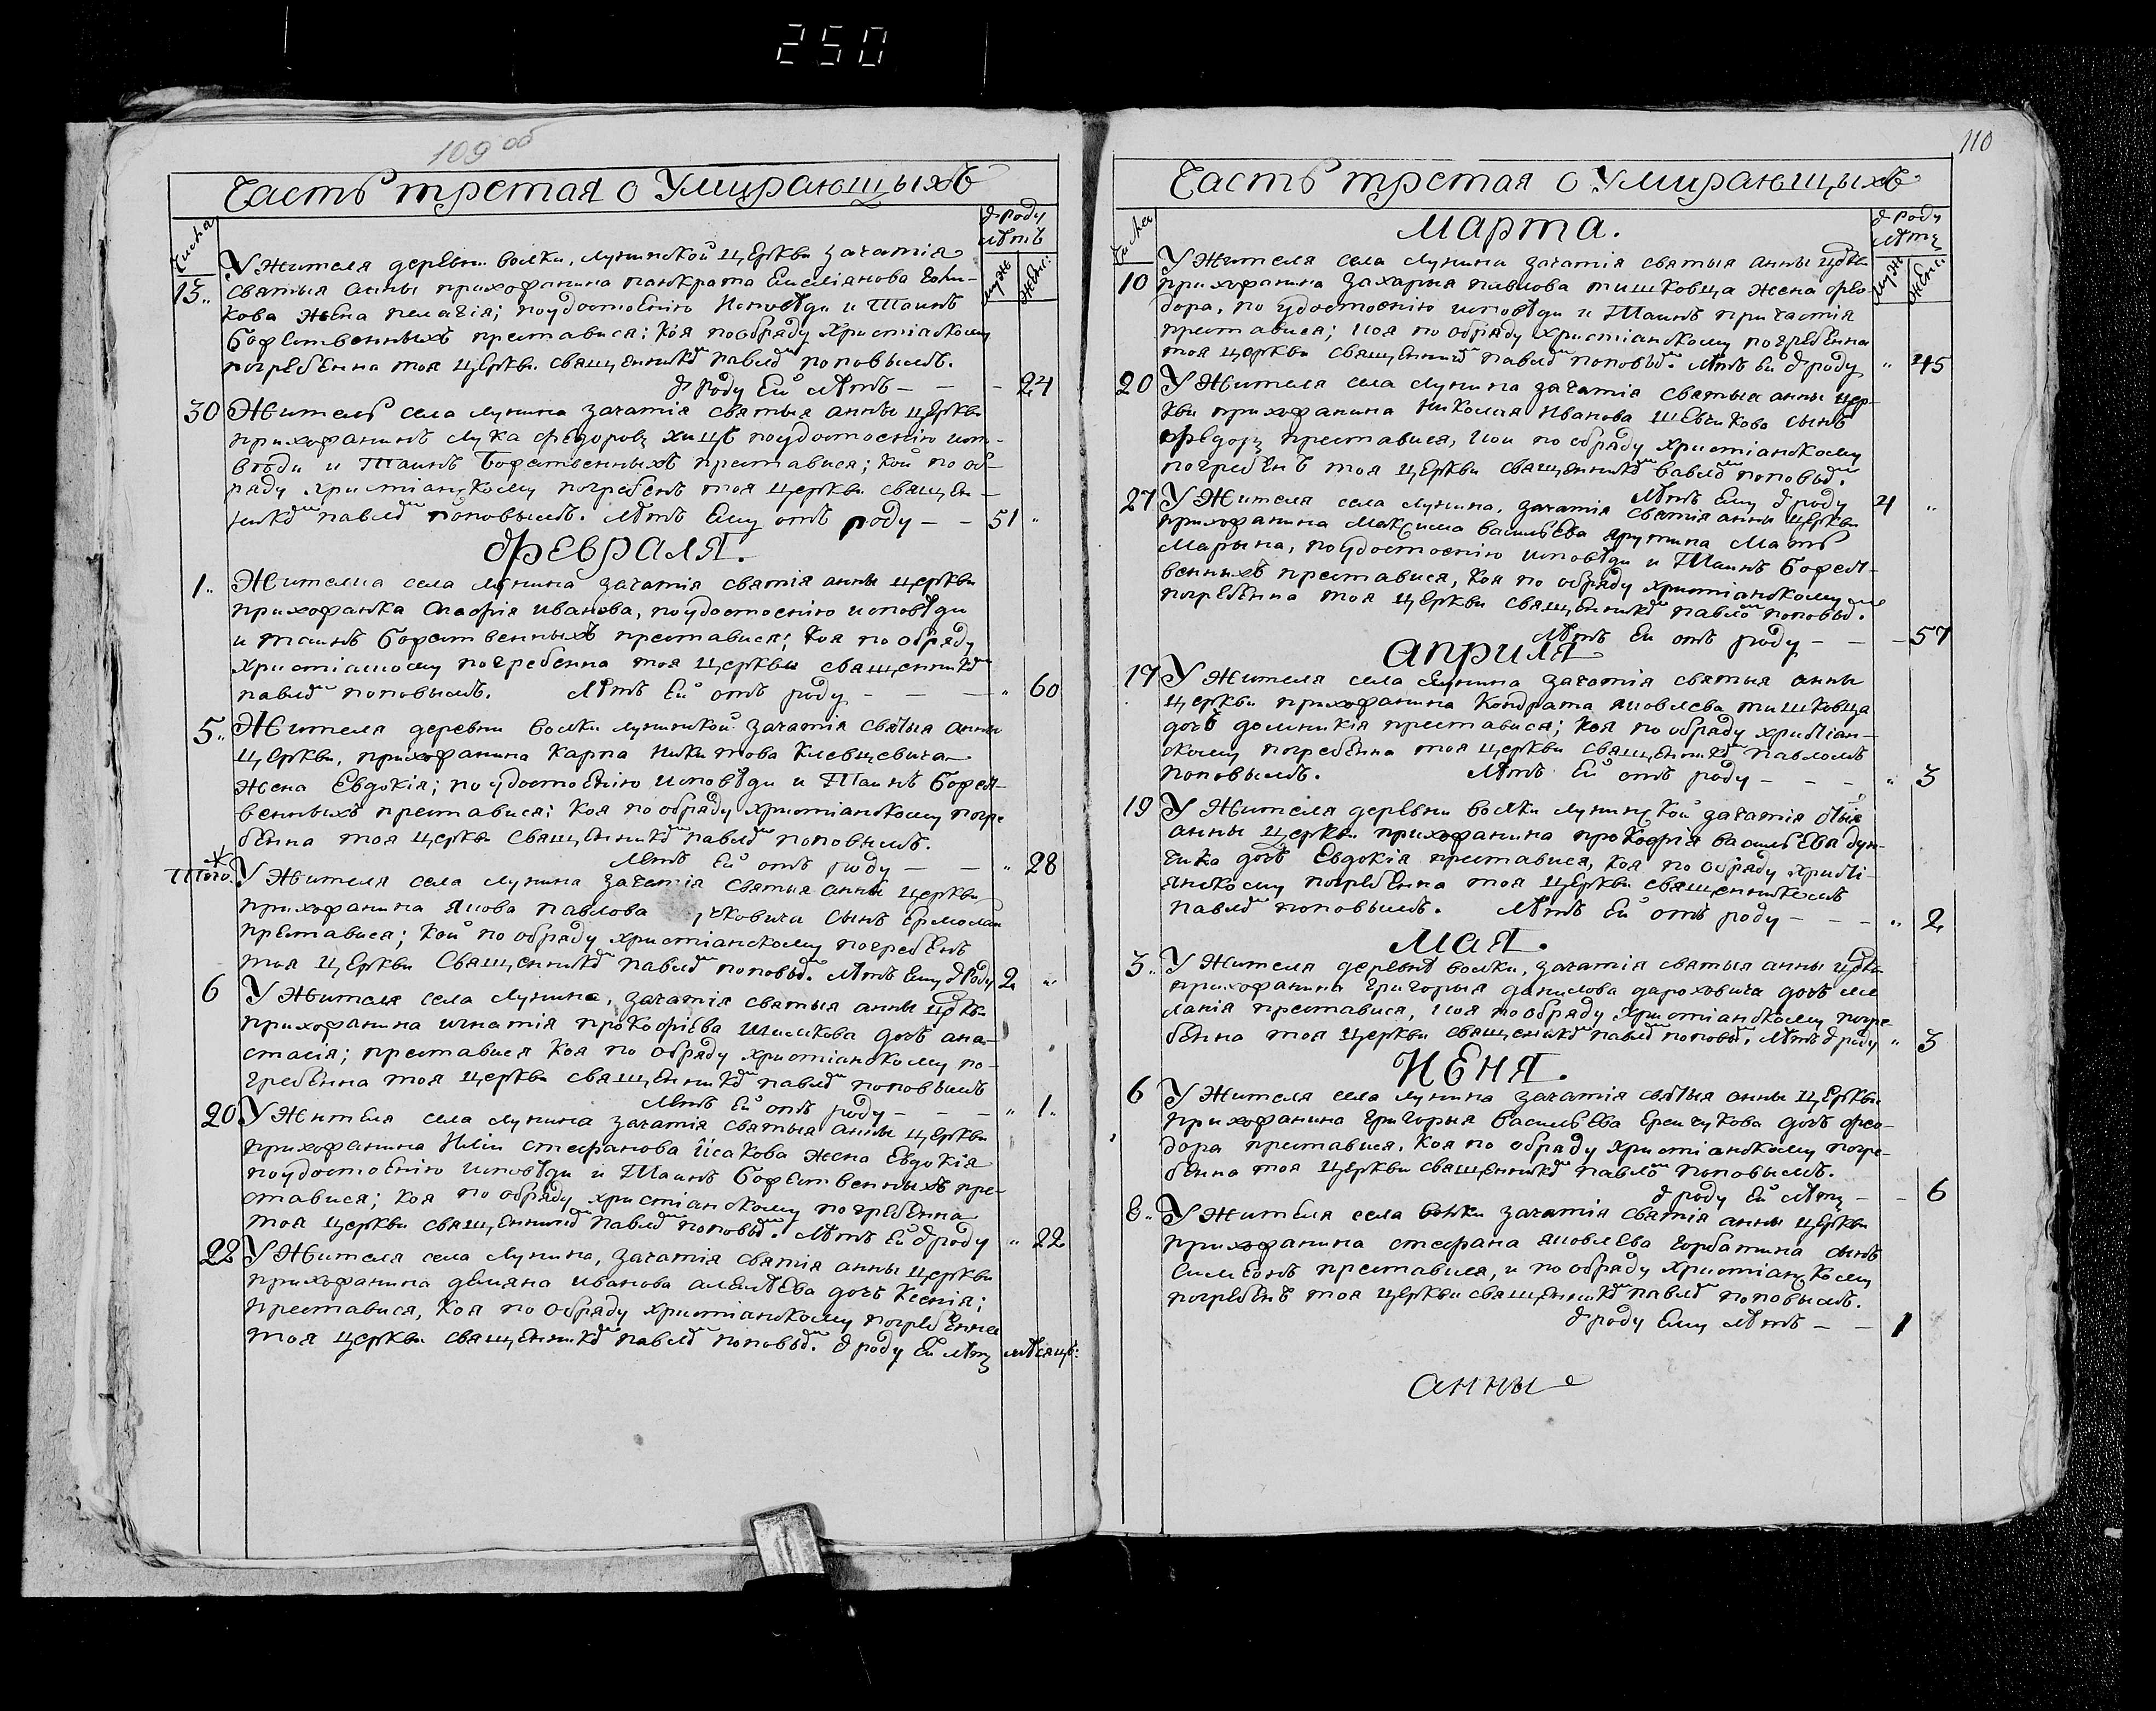 250
109 об
Часть третая о Умирающыхъ
Числа
ѿ роду
лѣтъ
муж
женс:
13.. У Жителя деревни волки, лунинской церкви зачатія
святыя анны прихожанина панкрата Емеліянова
кова жена пелагія; поудостоенію Исповѣди и Таинъ
Божественныхъ преставися: коя пообряду Христіанскому
погребенна тоя церкви священникомъ павломъ поповымъ.
ѿ Роду Ей лѣтъ - - - 24
30 Житель села лунина зачатія святыя анны церкви
прихожанинъ лука федоровъ поудостоенію испо-
вѣди и Таинъ Божественныхъ преставися; кой по об-
ряду христіанскому погребенъ тоя церкви священ-
никомъ павломъ поповымъ. лѣтъ Ему отъ роду - - 51 "
Февраля.
1.. Жителка села лунина зачатія святія анны церкви
прихожанка иванова, поудостоенію исповѣди
и таинъ божественныхъ преставися; коя по обряду
христіанскому погребенна тоя церквы священникомъ
павломъ поповымъ. Лѣтъ Ей отъ роду - - - " 60
5.. Жителя деревни волки лунинской зачатія святыя анны
церкви, прихожанина карпа никитова клевцевича
жена Евдокія; поудостоенію исповѣди и Таинъ божест-
венныхъ преставися; коя по обряду христіанскому погре-
бенна тоя церкви священникомъ павломъ поповымъ.
Лѣтъ Ей отъ роду - - " 28
Того. У Жителя села лунина зачатія святыя анны церкви
прихожанина якова павлова чковича сынъ Ермолай
преставися; кой по обряду христіанскому погребенъ
тоя церкви Священникомъ павломъ поповымъ. лѣтъ Ему ѿ Роду 2 "
6 У Жителя села лунина, зачатія святыя анны церкви
прихожанина игнатія прокофіева шимкова дочъ ана-
стасія; преставися коя по обряду христіанскому по-
гребенна тоя церкви священникомъ павломъ поповымъ
Лѣтъ Ей отъ роду - - - " 1..
20 У Жителя села лунина зачатія святыя анны церкви
прихожанина Иліи стефанова Ісакова жена Евдокія
поудостоенію исповѣди и Таинъ божественныхъ пре-
ставися; коя по обряду христіанскому погребенна
тоя церкви священникомъ павломъ поповымъ. Лѣтъ Ей ѿ роду " 22
22 У Жителя села лунина, зачатія святія анны церкви
прихожанина демяна иванова алексѣева дочъ ксенія;
преставися, коя по обряду христіанскому погребенна
тоя церкви священникомъ павломъ поповымъ. ѿ роду Ей лѣтъ мѣсяцъ:
110
Часть третая о Умирающыхъ
Числа
ѿ роду
лѣтъ
муж
женс:
Марта.
10 У Жителя села лунина зачатія святыя анны церкви
прихожанина захарыя павлова тишковца жена фео-
дора, по удостоенію исповѣди и Таинъ причастія
преставися; коя по обряду христіанскому погребенна
тоя церкви священникомъ павломъ поповымъ. лѣтъ Ей ѿ роду " 45
20 У Жителя села лунина зачатія святыя анны цер-
кви прихожанина николая иванова шевчикова сынъ
федоръ преставися, кои по обряду христіанскому
погребенъ тоя церкви священникомъ павломъ поповымъ.
Лѣтъ Ему ѿ роду 4 "
27 У Жителя села лунина, зачатія святія анны церкви
прихожанина максима васильева ярутина мать
Марына, поудостоенію исповѣди и Таинъ божест-
венныхъ преставися, коя по обряду христіанскому
погребенна тоя церкви священникомъ павломъ поповымъ.
Лѣтъ Ей отъ роду - - - 57
априля
17 У Жителя села лунина зачатія святыя анны
церкви прихожанина кондрата яковлева тишковца
дочъ домникія преставися; коя по обряду христіан-
скому погребенна тоя церкви священникомъ павломъ
поповымъ. Лѣтъ Ей отъ роду - - - " 3
19 У Жителя деревни волки лунинской зачатія святыя
анны церкви прихожанина прокофія васильева дун-
чика дочъ Евдокія преставися, коя по обряду христі-
янскому погребенна тоя церкви священникомъ
павломъ поповымъ. Лѣтъ Ей отъ роду - - - " 2
Мая.
3.. У Жителя деревнѣ волки, зачатія святыя анны церкви
прихожанина григорыя данилова дароховича дочъ ме
ланія преставися, коя по обряду христіанскому погре-
бенна тоя церкви священникомъ павломъ поповымъ. лѣтъ ѿ роду " 3
Иеня.
6 У Жителя села лунина зачатія святыя анны церкви
прихожанина григорыя васильева Еремчукова дочъ фео-
дора преставися, коя по обряду христіанскому погре-
бенна тоя церкви священникомъ павломъ поповымъ.
ѿ роду Ей лѣтъ - - 6
8.. У Жителя села волки зачатія святія анны церкви
прихожанина стефана яковлева горбатина сынъ
Симеонъ преставися, и по обряду христіанскому
погребенъ тоя церкви священникомъ павломъ поповымъ.
ѿ роду Ему лѣтъ - - 1
анны